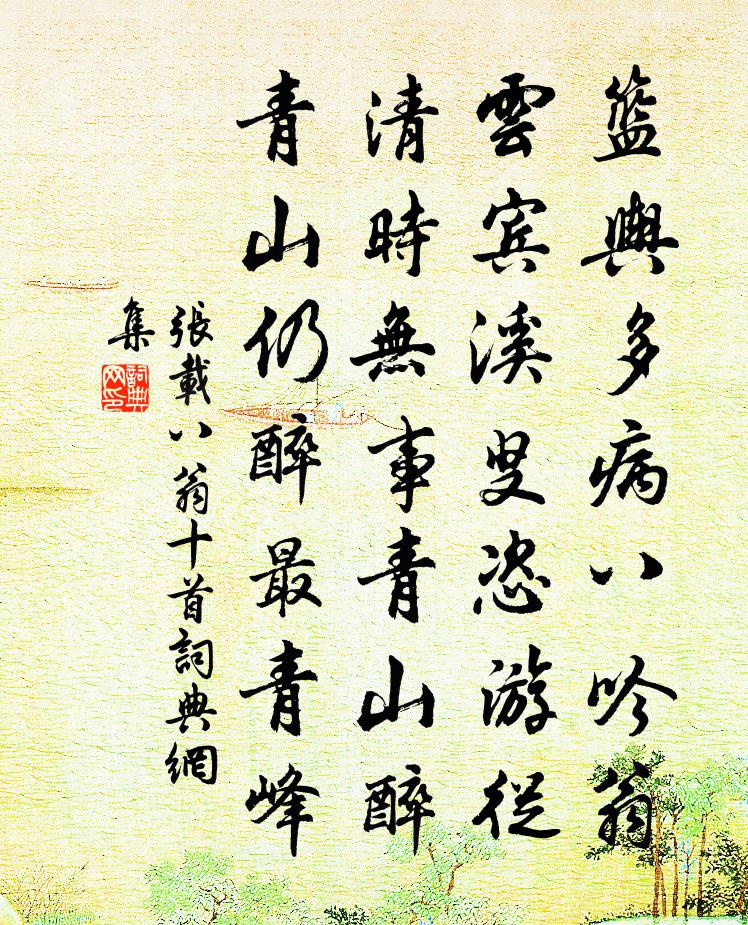 籃輿多病八吟翁
雲賓溪叟恣游從
清時無事青山醉
青山仍醉最青峰
張載八翁十首詞典網
集
詞典
网印